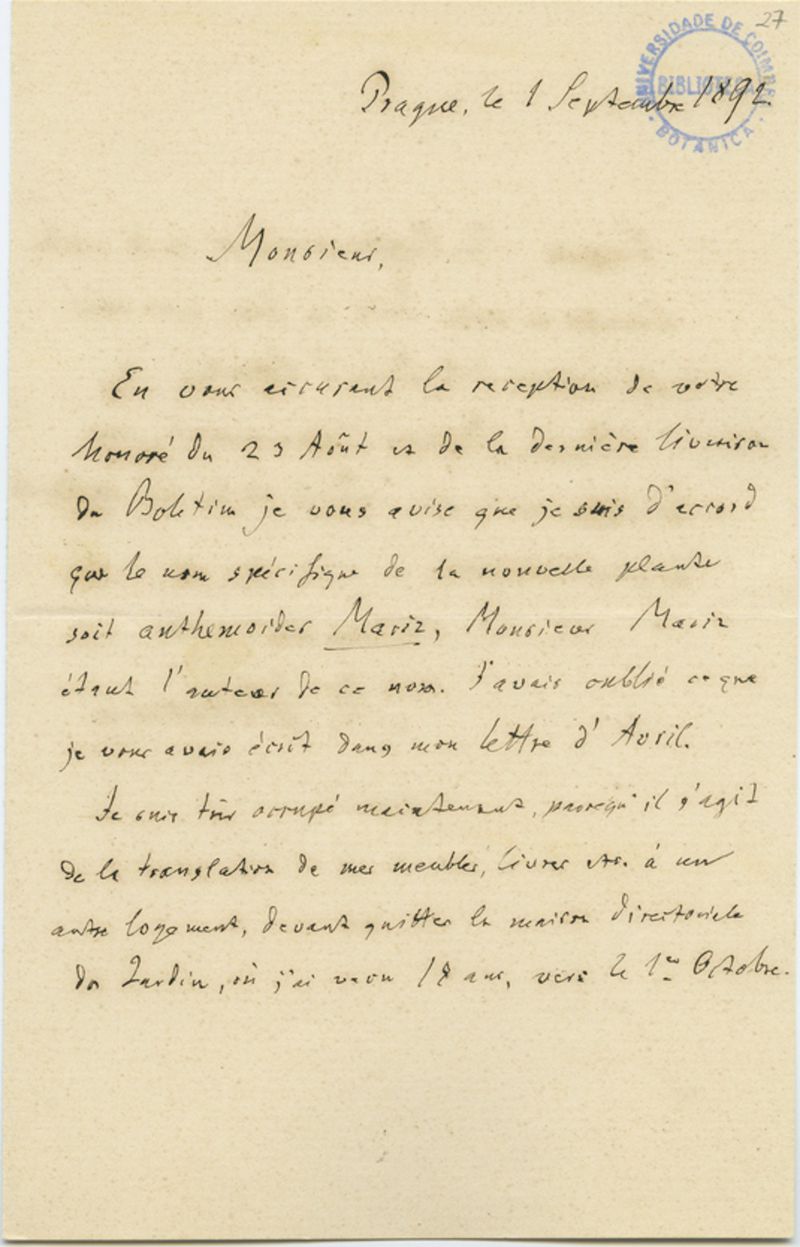 27
UNIVERSIDADE DE COIMBRA
BIBLIOTECA
BOTANICA
Prague, le 1 Septembre 1892.
Monsieur,
En vous accusant la reception de votre
honoré du 23 Août et de la dernière livraison
du Boletim je vous avise que je suis d'accord
que le nom spécifique de la nouvelle plante
soit anthemoides Mariz, Monsieur Mariz
étant l'auteur de ce nom. J'avais oublié ce que
je vous avais écrit dans mon lettre d'Avril.
Je suis très occupé maintenant, parcequ'il s'agit
de la translation de mes meubles, livres etc. à un
autre logement, devant quitter la maison directoriale
du Jardin, où j'ai vecu 18 ans, vers le 1er Octobre.